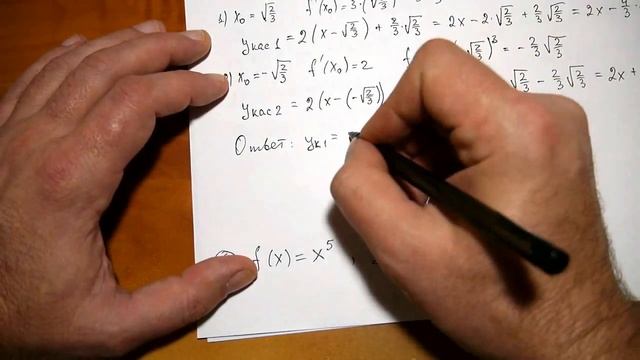 1) x₀ = √(2/3) f'(x₀) = 3·(√(2/3))
y кас 1 = 2(x − √(2/3)) + 2/3·√(2/3) = 2x − 2·√(2/3) + 2/3·√(2/3) = 2x −
x₀ = −√(2/3) f'(x₀) = 2 √(2/3))³ = −2/3√(2/3)
y кас 2 = 2(x − (−√(2/3)) √(2/3) − 2/3√(2/3) = 2x +
Ответ: yк₁ =
f(x) = x⁵ ,